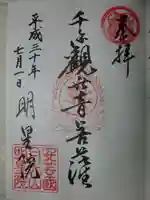 奉拝
千手観世音菩薩
平成三十年
七月一日
明星院